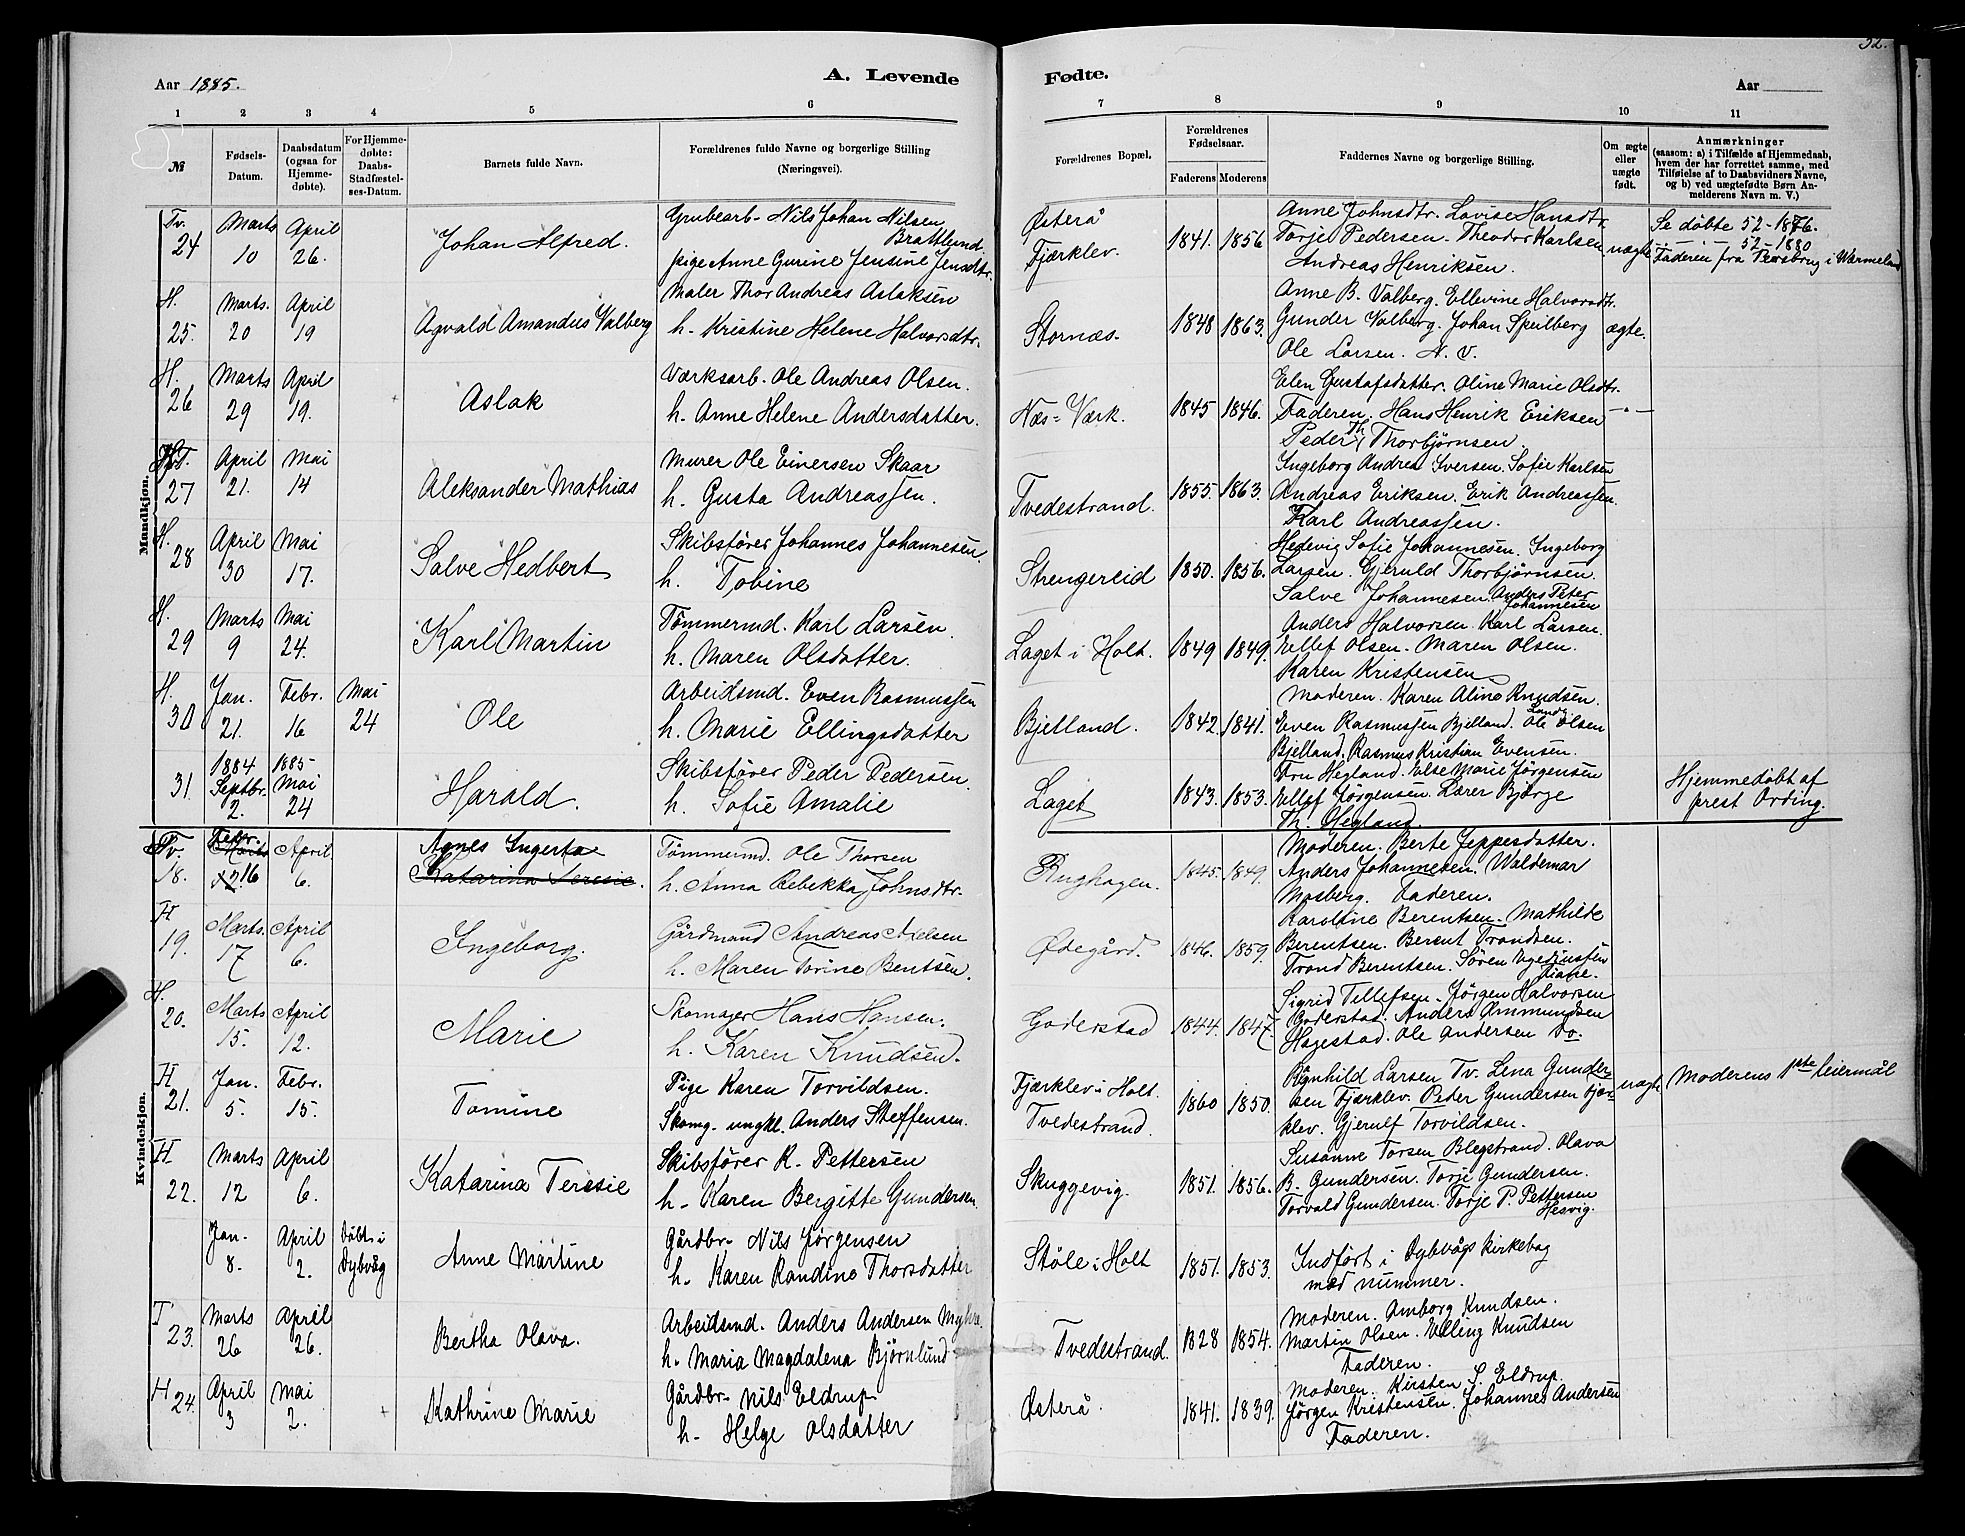 Aar 1885.
A. Levende
Fødte.
Aar
52.
1 2 3 4 5 6 7 8 9 10 11
№
Fødsels-Datum.
Daabsdatum (ogsaa for Hjemme-døbte).
For Hjemme-døbte: Daabs-Stadfæstel-ses-Datum.
Barnets fulde Navn.
Forældrenes fulde Navne og borgerlige Stilling (Næringsvei).
Forældrenes Bopæl.
Forældrenes Fødselsaar.
Faderens Moderens
Faddernes Navne og borgerlige Stilling.
Om ægte eller uægte født.
Anmærkninger (saasom: a) i Tilfælde af Hjemmedaab, hvem der har forrettet samme, med Tilføielse af to Daabsvidners Navne, og b) ved uægtefødte Børn An-melderens Navn m. V.)
Mandkjøn.
Tv. 24 Marts 10 April 26. Johan Alfred.
Grubearb- Nils Johan Nilsen Brattlund
pige Anne Gurine Jensine Jensdtr.
Østerå
Fjærklev.
1841. 1856
Anne Johnsdtr. Lovise Hansdtr.
Torje Pedersen. Theodor Karlsen
Andreas Henriksen.
uægte
Se døbte 52-1876.
52-1880
Faderen fra Persbrug i Wærmeland
H. 25. Marts. 20 April 19 Agvald Amandus Valberg
Maler Thor Andreas Aslaksen
h. Kristine Helene Halvorsdtr.
Stornæs.
1848 1863.
Anne B. Valberg. Ellevine Halvorsdtr.
Gunder Valberg. Johan Speilberg
Ole Larsen. N. V.
ægte.
H. 26 Marts 29 April 19. Aslak
Værksarb. Ole Andreas Olsen.
h. Anne Helene Andersdatter.
Næs-Værk.
1845 1846.
Elen Gustafsdatter. Oline Marie Olsdtr.
Faderen. Hans Henrik Eriksen
Peder Th. Thorbjørnsen.
-"-
T. 27 April 21. Mai 14 Aleksander Mathias
Murer Ole Einersen Skaar
h. Gusta Andreassen.
Tvedestrand.
1855. 1863.
Ingeborg Andrea Iversen. Sofie Karlsen
Andreas Eriksen. Erik Andreassen.
Karl Andreassen.
H. 28 April 30 Mai 17. Salve Hedbert
Skibsfører Johannes Johannesen.
h. Tobine
Strengereid
1850. 1856.
Hedevig Sofie Johannesen. Ingeborg
Larsen. Gjeruld Thorbjørnsen.
Salve Johannesen. Anders Peter Johannesen
H. 29 Marts 9 Mai 24. Karl Martin
Tømmermd. Karl Larsen.
h. Maren Olsdatter.
Laget i Holt.
1849 1849.
Anders Halvorsen. Karl Larsen.
Ellef Olsen. Maren Olsen.
Karen Kristensen
H. 30 Jan. 21. Febr. 16 Mai 24 Ole
Arbeidsmd. Even Rasmussen
h. Marie Ellingsdatter
Bjelland.
1842. 1841.
Moderen. Karen Aline Knudsen.
Even Rasmussen Bjelland. Ole Olsen
Bjelland. Rasmus Kristian Evensen.
31. 1884 Septbr. 2. 1885- Mai 24 Harald.
Skibsfører Peder Pedersen.
h. Sofie Amalie
Laget
1843. 1853.
Fru Hegland. Else Marie Jørgensen
Ellef Jørgensen. Lærer Bjørge
Th. Hegland.
Hjemmedøbt af
prest Ording.
Kvindekjøn.
Tv. 18. Febr. 16 April 6. Agnes Ingerta
Katarina Teresie.
Tømmermd. Ole Thorsen
h. Anna Rebekka Johnsdtr.
Rughagen.
1845. 1849.
Moderen. Berte Jeppesdatter.
Anders Johannesen. Waldemar
Mosberg. Faderen.
H 19. Marts. 17 April 6. Ingeborg.
Gårdmand Andreas Nielsen
h. Maren Torine Bentsen.
Ødegård.
1846. 1859.
Karoline Berentsen. Mathilde
Berentsen. Berent Trondsen.
Trond Berentsen. Søren
H. 20. Marts 15. April 12. Marie
Skomager Hans Hansen.
h. Karen Knudsen.
Goderstad
1844. 1847.
Sigrid Tellefsen. Jørgen Halvorsen
Goderstad. Anders Ammundsen
Hagestad. Ole Andersen Do.
H 21. Jan. 5. Febr. 15. Tomine
Pige Karen Torvildsen.
Skomg. ungkl. Anders Steffensen.
Fjærklev i Holt.
Tvedestrand.
1860 1850.
Rågnhild Larsen Tv. Lena Gunder-
sen Fjærklev. Peder Gundersen Fjær-
klev. Gjerulf Torvildsen.
uægte
Moderens 1ste leiermål
H 22. Marts 12 April 6. Katarina Teresie
Skibsfører K. Pettersen
h. Karen Bergitte Gundersen
Skuggevig.
1851. 1856.
Susanne Torsen Blegstrand. Olava
B. Gundersen. Torje Gundersen.
Torvald Gundersen. Torje P. Pettersen
Hesvig.
Jan. 8. April 2. Døbt i Dybvåg Anne Martine
Gårdbr. Nils Jørgensen
h. Karen Randine Thorsdatter
Støle i Holt
1851. 1853.
Indført i Dybvågs kirkebog
med nummer.
T 23. Marts 26 April 26. Bertha Olava.
Arbeidsmd. Anders Andersen Myhre.
h. Maria Magdalena Bjørnlund
Tvedestrand.
1828 1854.
Moderen. Amborg Knudsen.
Martin Olsen. Elling Knudsen
Faderen.
H 24. April 3 Mai 2. Kathrine Marie
Gårdbr- Nils Eldrup
h. Helge Olsdatter
Østerå.
1841. 1839.
Moderen. Kirsten S. Eldrup.
Jørgen Kristensen. Johannes Andersen
Faderen.